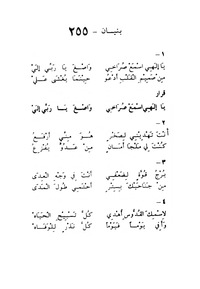 بنيان - ٢٥٥
- ١
يَا إِلهِي اسْمَعْ صُرَاخِي وَاصْغَ يَا رَبِّي إِلَيّ
مِنْ صَمِيمِ القَلْبِ أَدْعُو حِينَمَا يُغْشَى عَلَيّ
قرار
يَا إِلهِي اسْمَعْ صُرَاخِي وَاصْغَ يَا رَبِّي إِلَيّ
- ٢
أَنْتَ تَهْدِينِي لِصَخْرٍ هُوَ مِنِّي أَرْفَعُ
كُنْتَ لِي مَلْجَا أَمَانٍ مِنْ عَدُوٍّ يُفْزِعُ
- ٣
بُرْجُ قُوَّةٍ لِضَعْفِي أَنْتَ فِي وَجْهِ العِدَى
مِنْ جَنَاحَيْكَ بِسِتْرٍ أَحْتَمِي طُولَ المَدَى
- ٤
لاِسْمِكَ القُدُّوسِ أُهْدِي كُلَّ تَسْبِيحِ الحَيَاهْ
وَأَفِي يَوْماً فَيَوْماً كُلَّ نَذْرٍ لِلْوَفَاهْ